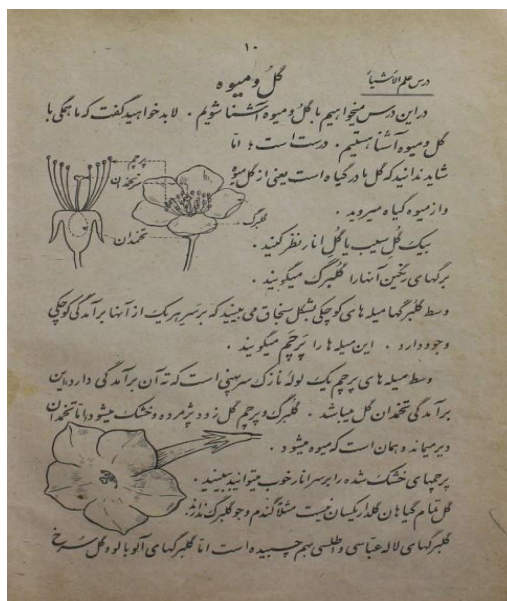 ۱۰
درس علم الاشیاء
گل و میوه
در این درس میخواهیم با گل و میوه آشنا شویم . لابد خواهید گفت که ما همگی با
گل و میوه آشنا هستیم . درست است ؛ امّا
شاید ندانید که گل مادر گیاه است یعنی از گل میوه
و از میوه گیاه میروید .
بیک گُل سیب یا گُل انار نظر کنید .
برگهای رنگین آنها را گلبرگ میگویند .
پرچم
تخمدان
گلبرگ
وسط گلبرگها میله های کوچکی بشکل سنجاق می بینید که بر سر هر یک از آنها برآمدگی کوچکی
وجود دارد . این میله ها را پَرچَم میگویند .
وسط میله های پرچم یک لوله نازک سرپهنی است که ته آن برآمدگی دارد، این
برآمدگی تخمدان گل میباشد . گلبرگ و پرچم گل زود پژمرده و خشک میشود، امّا تخمدان
دیر میماند و همان است که میوه میشود .
پرچمهای خشک شده را بر سر انار خوب میتوانید ببینید .
گل تمام گیاهان گلدار یکسان نیست مثلاً گندم و جو گلبرگ ندارند.
گلبرگهای لاله عباسی و اطلسی بهم چسبیده است امّا گلبرگهای آلوبالو و گل سرخ